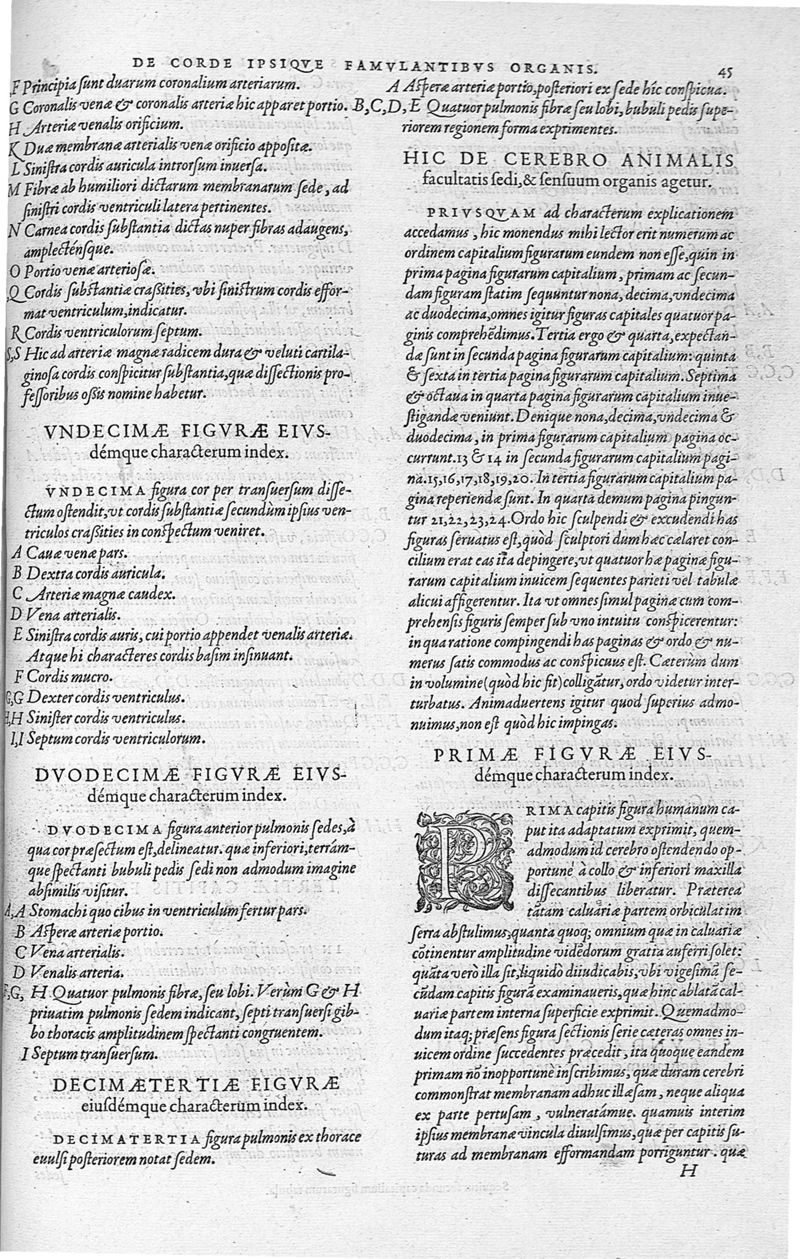 DE CORDE IPSIQVE FAMVLANTIBVS ORGANIS. 45
F Principia sunt duarum coronalium arteriarum.
G Coronalis venæ & coronalis arteriæ hic apparet portio.
H Arteriæ venalis orificium.
K Duæ membranæ arterialis venæ orificio appositæ.
L Sinistra cordis auricula introrsum inuersa.
M Fibræ ab humiliori dictarum membranarum sede, ad
sinistri cordis ventriculi latera pertinentes.
N Carnea cordis substantia dictas nuper fibras adaugens,
amplecténsque.
O Portio venæ arteriosæ.
Q Cordis substantiæ crassities, vbi sinistrum cordis effor-
mat ventriculum, indicatur.
R Cordis ventriculorum septum.
S,S Hic ad arteriæ magnæ radicem dura & veluti cartila-
ginosa cordis conspicitur substantia, quæ dissectionis pro-
fessoribus ossis nomine habetur.
VNDECIMÆ FIGVRÆ EIVS-
démque characterum index.
VNDECIMA figura cor per transuersum disse-
ctum ostendit, vt cordis substantiæ secundùm ipsius ven-
triculos crassities in conspectum veniret.
A Cauæ venæ pars.
B Dextra cordis auricula.
C Arteriæ magnæ caudex.
D Vena arterialis.
E Sinistra cordis auris, cui portio appendet venalis arteriæ.
Atque hi characteres cordis basim insinuant.
F Cordis mucro.
G,G Dexter cordis ventriculus.
H,H Sinister cordis ventriculus.
I,I Septum cordis ventriculorum.
DVODECIMÆ FIGVRÆ EIVS-
démque characterum index.
DVODECIMA figura anterior pulmonis sedes, à
qua cor præsectum est, delineatur. quæ inferiori, terrám-
que spectanti bubuli pedis sedi non admodum imagine
absimilis visitur.
A,A Stomachi quo cibus in ventriculum fertur pars.
B Asperæ arteriæ portio.
C Vena arterialis.
D Venalis arteria.
F,G, H Quatuor pulmonis fibræ, seu lobi. Verùm G & H
priuatim pulmonis sedem indicant, septi transuersi gib-
bo thoracis amplitudinem spectanti congruentem.
I Septum transuersum.
DECIMÆTERTIÆ FIGVRÆ
eiusdémque characterum index.
DECIMATERTIA figura pulmonis ex thorace
euulsi posteriorem notat sedem.
A Asperæ arteriæ portio, posteriori ex sede hîc conspicua.
B,C,D,E Quatuor pulmonis fibræ seu lobi, bubuli pedis supe-
riorem regionem forma exprimentes.
HIC DE CEREBRO ANIMALIS
facultatis sedi, & sensuum organis agetur.
PRIVSQVAM ad characterum explicationem
accedamus, hic monendus mihi lector erit numerum ac
ordinem capitalium figurarum eundem non esse, quin in
prima pagina figurarum capitalium, primam ac secun-
dam figuram statim sequuntur nona, decima, vndecima
ac duodecima, omnes igitur figuras capitales quatuor pa-
ginis comprehẽdimus. Tertia ergo & quarta, expectan-
dæ sunt in secunda pagina figurarum capitalium: quinta
& sexta in tertia pagina figurarum capitalium. Septima
& octaua in quarta pagina figurarum capitalium inue-
stigandæ veniunt. Denique nona, decima, vndecima &
duodecima, in prima figurarum capitalium pagina oc-
currunt. 13 & 14 in secunda figurarum capitalium pagi-
na. 15, 16, 17, 18, 19, 20. In tertia figurarum capitalium pa-
gina reperiendæ sunt. In quarta demum pagina pingun-
tur 21, 22, 23, 24. Ordo hic sculpendi & excudendi has
figuras seruatus est, quòd sculptori dum hæc cælaret con-
cilium erat eas ita depingere, vt quatuor hæ paginæ figu-
rarum capitalium inuicem sequentes parieti vel tabulæ
alicui affigerentur. Ita vt omnes simul paginæ cum com-
prehensis figuris semper sub vno intuitu conspicerentur:
in qua ratione compingendi has paginas & ordo & nu-
merus satis commodus ac conspicuus est. Cæterùm dum
in volumine (quòd hic fit) colligãtur, ordo videtur inter-
turbatus. Animaduertens igitur quod superius admo-
nuimus, non est quòd hic impingas.
PRIMÆ FIGVRÆ EIVS-
démque characterum index.
PRIMA capitis figura humanum ca-
put ita adaptatum exprimit, quem-
admodum id cerebro ostendendo op-
portunè à collo & inferiori maxilla
dissecantibus liberatur. Præterea
tãtam caluariæ partem orbiculatim
serra abstulimus, quanta quoq; omnium quæ in caluariæ
cõtinentur amplitudine videdorum gratia auferri solet:
quãta verò illa sit, liquidò diiudicabis, vbi vigesimã se-
cũdam capitis figurã examinaueris, quæ hinc ablatã cal-
uariæ partem interna superficie exprimit. Quemadmo-
dum itaq; præsens figura sectionis serie cæteras omnes in-
uicem ordine succedentes præcedit, ita quoque eandem
primam nõ inopportunè inscribimus, quæ duram cerebri
commonstrat membranam adhuc illæsam, neque aliqua
ex parte pertusam, vulneratámue. quamuis interim
ipsius membranæ vincula diuulsimus, quæ per capitis su-
turas ad membranam efformandam porriguntur. quæ
H